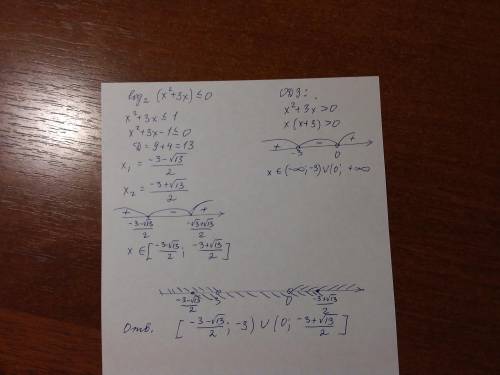 log₂ (x²+3x) ≤ 0
x²+3x ≤ 1
x²+3x-1 ≤ 0
D = 9+4 = 13
x₁ = \frac{-3-√13}{2}
x₂ = \frac{-3+√13}{2}
+ - +
\frac{-3-√13}{2} \frac{-3+√13}{2}
x ∈ [\frac{-3-√13}{2}; \frac{-3+√13}{2}]
ОДЗ:
x²+3x > 0
x(x+3) > 0
+ - +
-3 0
x ∈ (-∞; -3) ∪ (0; +∞
\frac{-3-√13}{2} -3 0 \frac{-3+√13}{2}
Отв. [\frac{-3-√13}{2}; -3) ∪ (0; \frac{-3+√13}{2}]